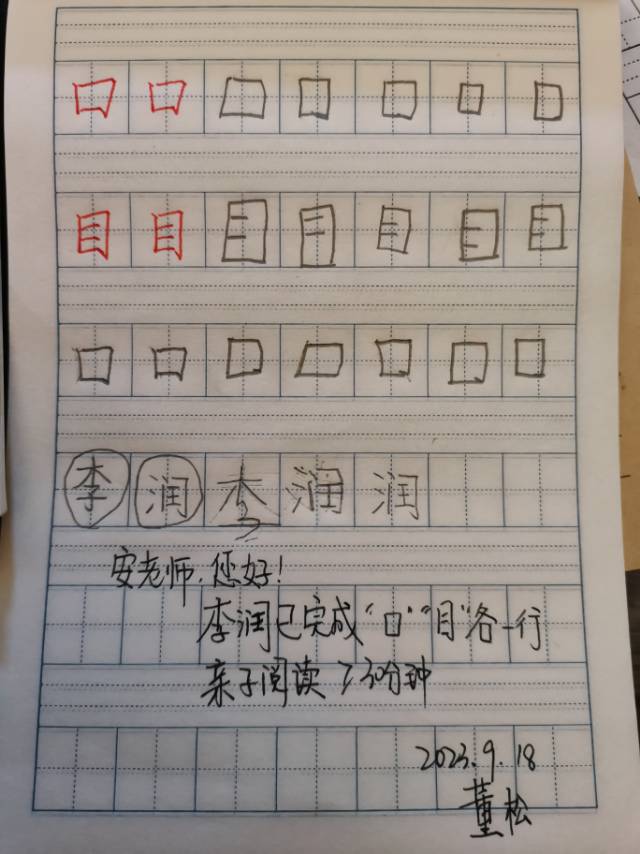 口 口 口 口 口 口 口
目 目 目 目 目 目 目
口 口 口 口 口 口 口
李 润 李 润 润
安老师,您好!
李润已完成“口”“目”各一行
亲子阅读≥30分钟
2023.9.18
董松